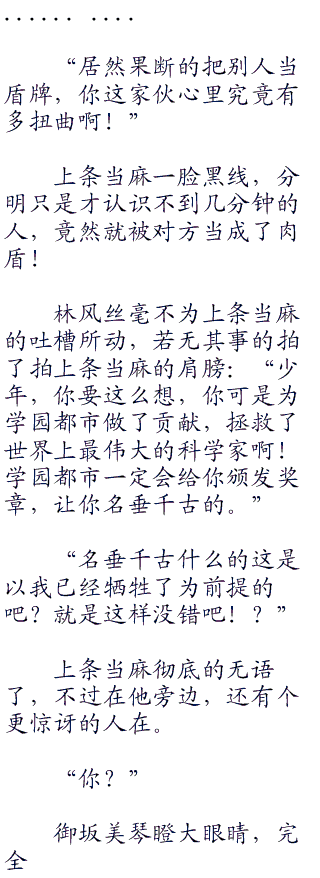 ...... ....
“居然果断的把别人当
盾牌，你这家伙心里究竟有
多扭曲啊！”
上条当麻一脸黑线，分
明只是才认识不到几分钟的
人，竟然就被对方当成了肉
盾！
林风丝毫不为上条当麻
的吐槽所动，若无其事的拍
了拍上条当麻的肩膀：“少
年，你要这么想，你可是为
学园都市做了贡献，拯救了
世界上最伟大的科学家啊！
学园都市一定会给你颁发奖
章，让你名垂千古的。”
“名垂千古什么的这是
以我已经牺牲了为前提的
吧？就是这样没错吧！？”
上条当麻彻底的无语
了，不过在他旁边，还有个
更惊讶的人在。
“你？”
御坂美琴瞪大眼睛，完
全